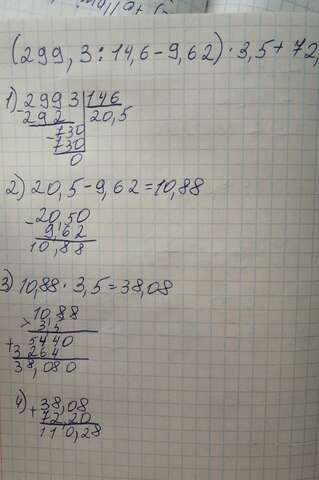 (299,3:14,6-9,62)·3,5+72,
1) 2993 | 146
-292 20,5
-730
730
0
2) 20,5-9,62=10,88
-20,50
9,62
10,88
3) 10,88·3,5=38,08
×10,88
3,5
+5440
3264
38,080
4) +38,08
72,20
110,28